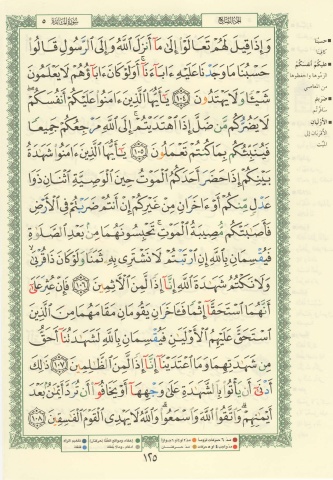 الجزء السابع
سورة المائدة ٥
وَإِذَا قِيلَ لَهُمْ تَعَالَوْا۟ إِلَىٰ مَآ أَنزَلَ ٱللَّهُ وَإِلَى ٱلرَّسُولِ قَالُوا۟
حَسْبُنَا مَا وَجَدْنَا عَلَيْهِ ءَابَآءَنَآ أَوَلَوْ كَانَ ءَابَآؤُهُمْ لَا يَعْلَمُونَ
شَيْـًٔا وَلَا يَهْتَدُونَ ١٠٤ يَـٰٓأَيُّهَا ٱلَّذِينَ ءَامَنُوا۟ عَلَيْكُمْ أَنفُسَكُمْ
لَا يَضُرُّكُم مَّن ضَلَّ إِذَا ٱهْتَدَيْتُمْ إِلَى ٱللَّهِ مَرْجِعُكُمْ جَمِيعًا
فَيُنَبِّئُكُم بِمَا كُنتُمْ تَعْمَلُونَ ١٠٥ يَـٰٓأَيُّهَا ٱلَّذِينَ ءَامَنُوا۟ شَهَـٰدَةُ
بَيْنِكُمْ إِذَا حَضَرَ أَحَدَكُمُ ٱلْمَوْتُ حِينَ ٱلْوَصِيَّةِ ٱثْنَانِ ذَوَا
عَدْلٍ مِّنكُمْ أَوْ ءَاخَرَانِ مِنْ غَيْرِكُمْ إِنْ أَنتُمْ ضَرَبْتُمْ فِى ٱلْأَرْضِ
فَأَصَـٰبَتْكُم مُّصِيبَةُ ٱلْمَوْتِ تَحْبِسُونَهُمَا مِنۢ بَعْدِ ٱلصَّلَوٰةِ
فَيُقْسِمَانِ بِٱللَّهِ إِنِ ٱرْتَبْتُمْ لَا نَشْتَرِى بِهِۦ ثَمَنًا وَلَوْ كَانَ ذَا قُرْبَىٰ
وَلَا نَكْتُمُ شَهَـٰدَةَ ٱللَّهِ إِنَّآ إِذًا لَّمِنَ ٱلْـَٔاثِمِينَ ١٠٦ فَإِنْ عُثِرَ عَلَىٰٓ
أَنَّهُمَا ٱسْتَحَقَّآ إِثْمًا فَـَٔاخَرَانِ يَقُومَانِ مَقَامَهُمَا مِنَ ٱلَّذِينَ
ٱسْتَحَقَّ عَلَيْهِمُ ٱلْأَوْلَيَـٰنِ فَيُقْسِمَانِ بِٱللَّهِ لَشَهَـٰدَتُنَآ أَحَقُّ
مِن شَهَـٰدَتِهِمَا وَمَا ٱعْتَدَيْنَآ إِنَّآ إِذًا لَّمِنَ ٱلظَّـٰلِمِينَ ١٠٧ ذَٰلِكَ
أَدْنَىٰٓ أَن يَأْتُوا۟ بِٱلشَّهَـٰدَةِ عَلَىٰ وَجْهِهَآ أَوْ يَخَافُوٓا۟ أَن تُرَدَّ أَيْمَـٰنٌۢ بَعْدَ
أَيْمَـٰنِهِمْ وَٱتَّقُوا۟ ٱللَّهَ وَٱسْمَعُوا۟ وَٱللَّهُ لَا يَهْدِى ٱلْقَوْمَ ٱلْفَـٰسِقِينَ ١٠٨
١٢٥
حسبنا
كافينا
عليكم أنفسكم
الزموها واحفظوها
من المعاصي
ضربتم
سافرتم
الأوليان
الأقربان إلى
الميت